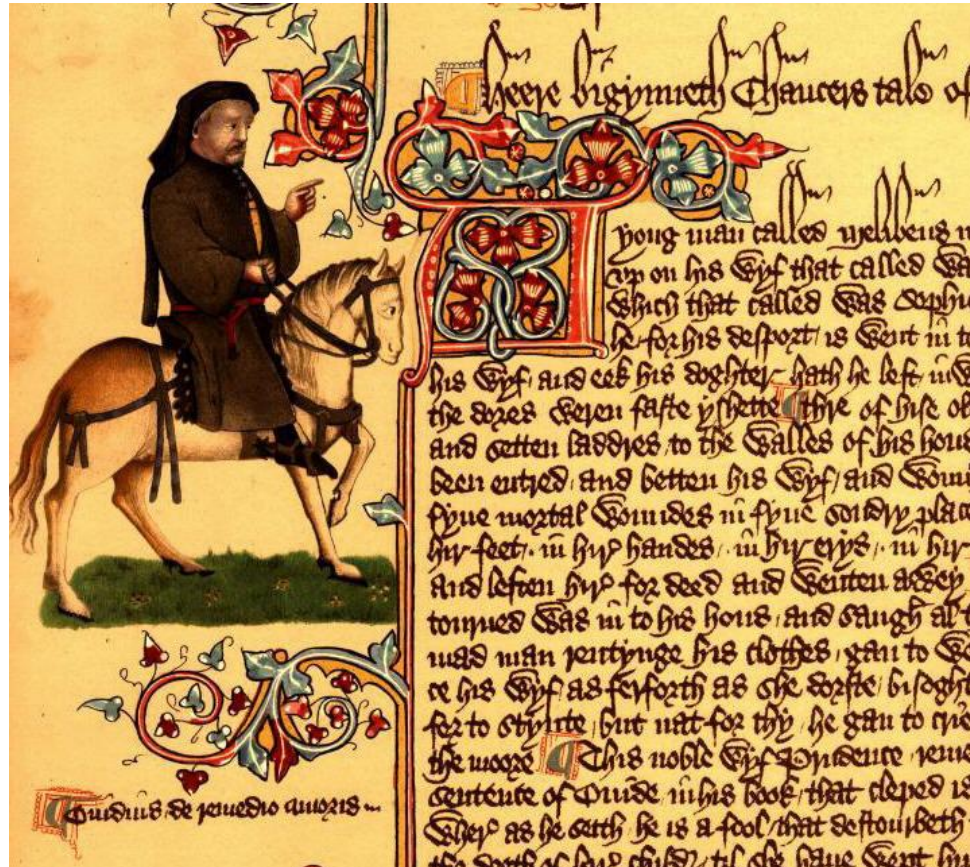 Heere bigynneth Chaucers tale of
A yong man called Melibeus
vp on his wyf that called
which that called was Sophi
he for his desport / is went in to
his wyf / and eek his doghter hath he left inw
the dores weren faste yshette thre of hise ol
and setten laddres / to the walles of his hous
been entred / and betten his wyf / and woun
fyue mortal woundes in fyue sondry place
hir feet / in hir handes / in hir erys / in hir
and leften hir for deed and wenten awey
tourned was in to his hous / and saugh al t
mad man rentynge his clothes / gan to we
ce his wyf / as ferforth as she dorste / bisoght
for to stynte / but nat for thy / he gan to crie
the moore This noble wyf Prudence / reme
Ouidius de remedio amoris
sentence of Ouide / in his book / that cleped is
Wher as he seith he is a fool / that destourbeth
the deeth of hir child / til she haue wept hir